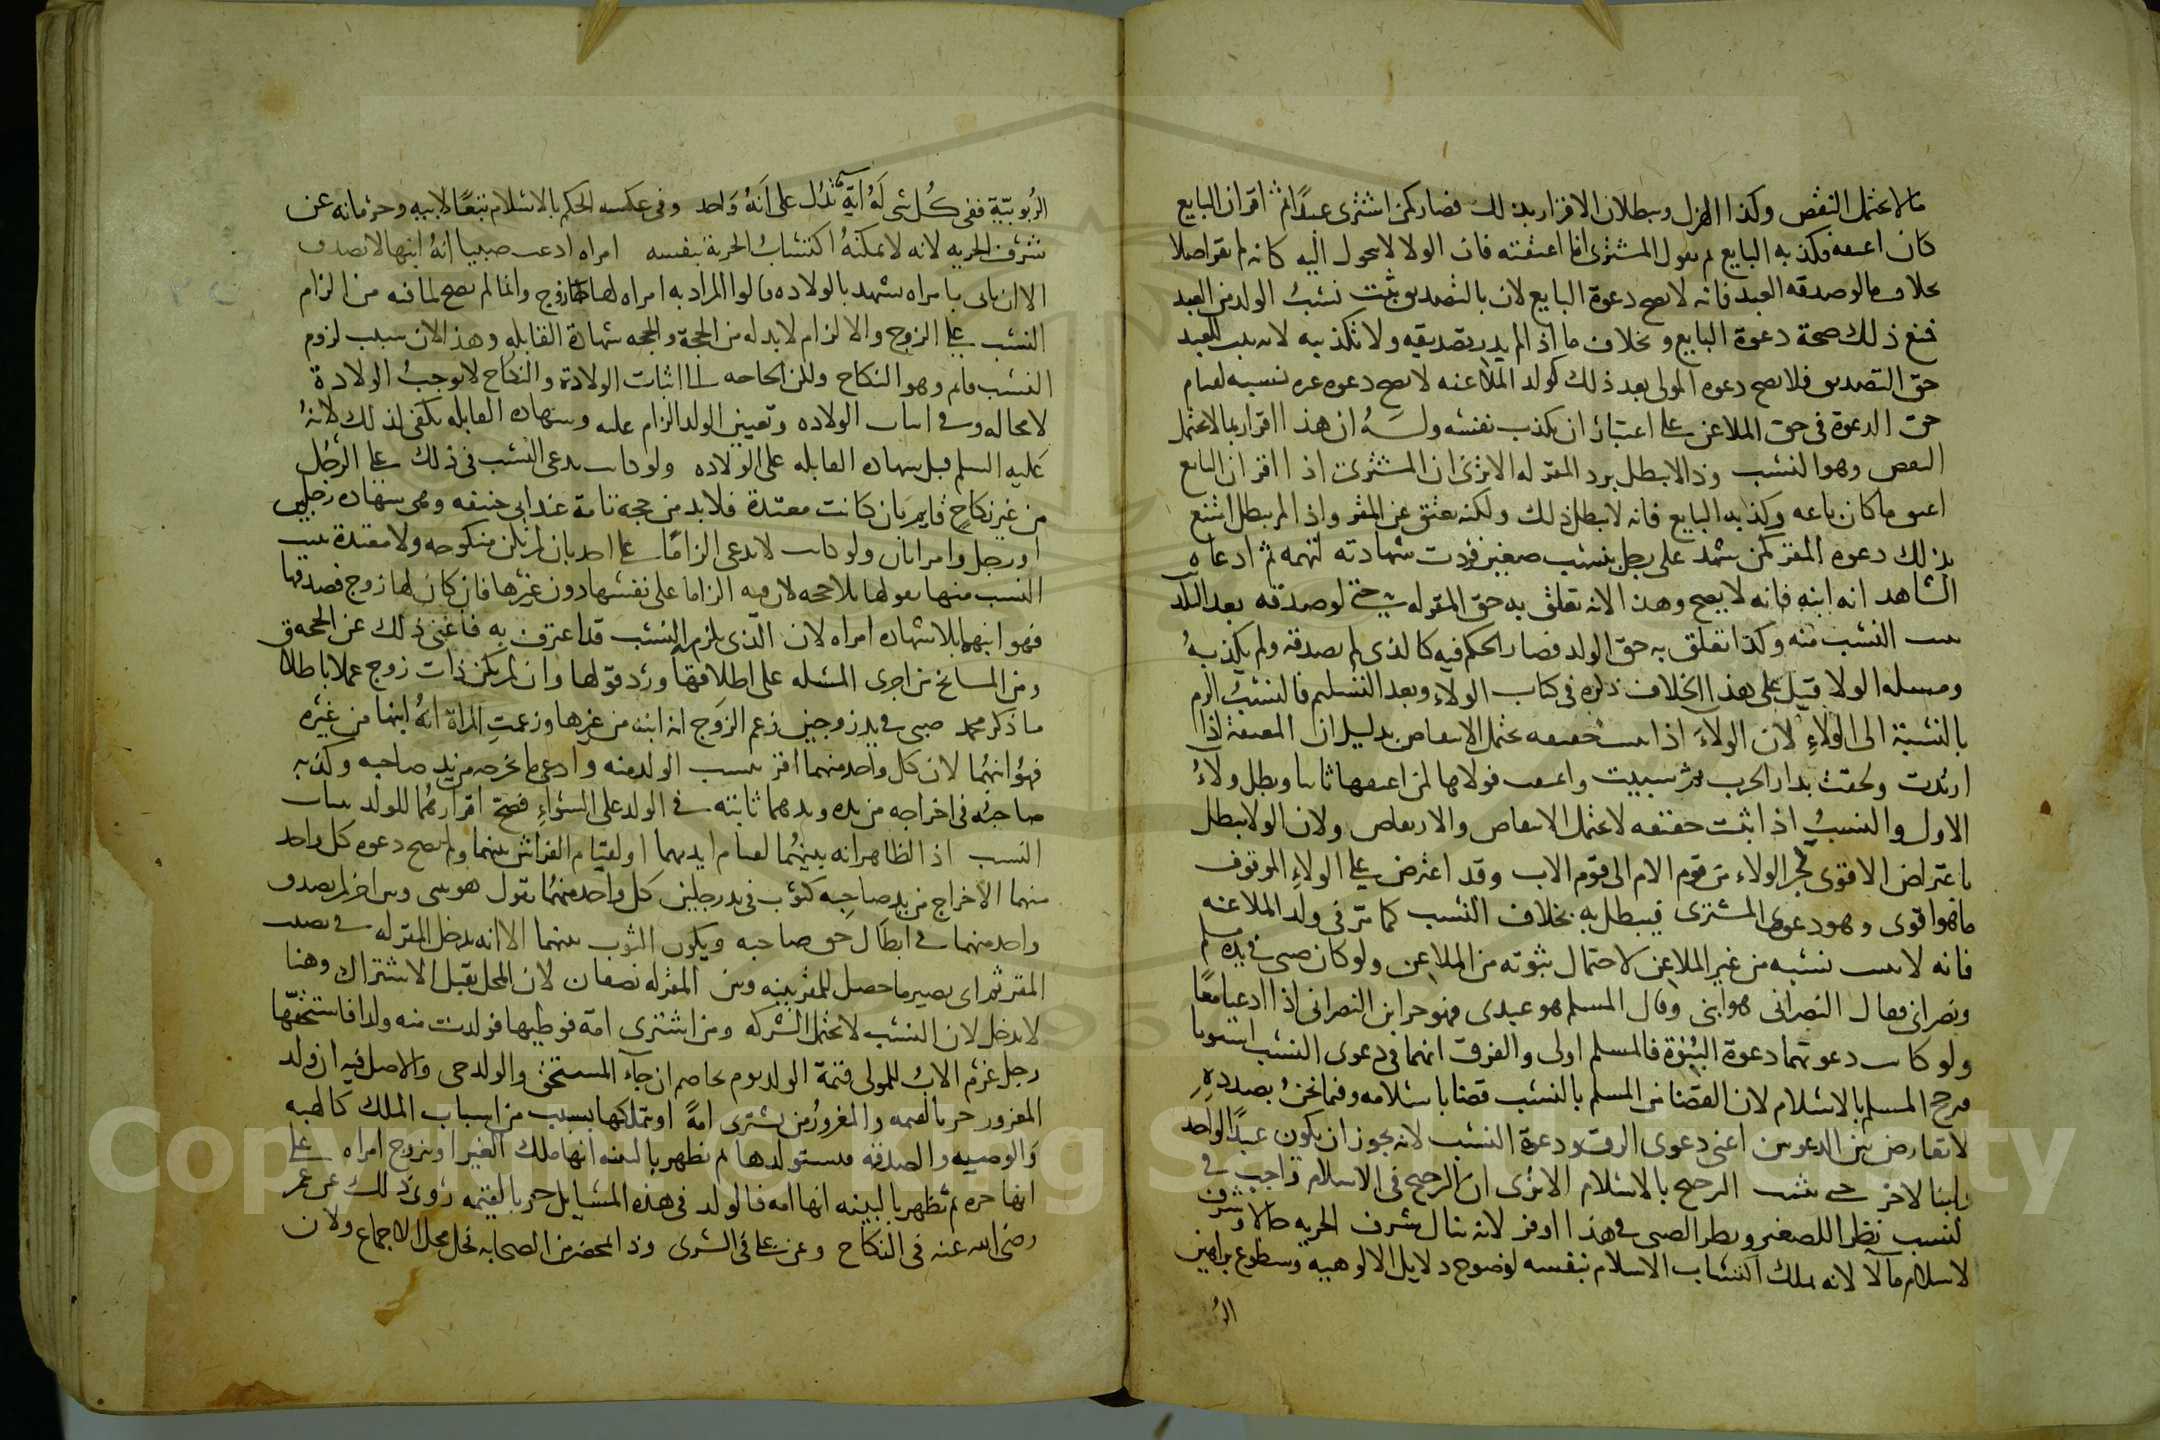 مالا يحتمل النقض وكذا الهزل وببطلان الاقرار بذلك فصار كمن اشترى عبدا ثم اقر ان البايع
كان اعتقه فكذبه البايع ثم يقول المشترى انا اعتقته فان الولا لا يتحول اليه كانه لم يقر اصلا
بخلاف ما لو صدقه العبد فانه لا يصح دعوة البايع لان بالتصديق يثبت نسب الولد من العبد
فمنع ذلك صحة دعوة البايع وبخلاف ما اذا لم يدر تصديقه ولا تكذيبه لانه للعبد
حق التصديق فلا يصح دعوه المولى بعد ذلك كولد الملاعنه لا يصح دعوه غيره نسبه لقيام
حق الدعوة فى حق الملاعن على اعتبار ان يكذب نفسه وله ان هذا اقرار بما لا يحتمل
النقض وهو النسب وذا لا يبطل برد المقر له الا ترى ان المشترى اذا اقر ان البايع
اعتق ما كان باعه وكذبه البايع فانه لا يبطل ذلك ولكنه يعتق عن المقر واذا لم يبطل امتنع
بذلك دعوه المقر كمن شهد على رجل بنسب صغير فردت شهادته لتهمه ثم ادعاه
الشاهد انه ابنه فانه لا يصح وهذا لانه تعلق به حق المقر له حتى لو صدقه بعد التكذيب
يثبت النسب منه وكذا تعلق به حق الولد فصار الحكم فيه كالذى لم يصدقه ولم يكذبه
ومسله الولا قيل على هذا الخلاف ذكره فى كتاب الولاء وبعد التسليم فالنسب الزم
بالنسبة الى الولاء لان الولاء اذا ثبت حقيقه يحتمل الانتقاض بدليل ان المعتقة اذا
ارتدت ولحقت بدار الحرب ثم سبيت واعتقت فولاها لمن اعتقها ثانيا وبطل ولاء
الاول والنسب اذا ثبت حقيقه لا يحتمل الانتقاض والارتفاض ولان الولا يبطل
باعتراض الاقوى كجر الولاء من قوم الام الى قوم الاب وقد اعترض على الولاء الموقوف
ما هو اقوى وهو دعوى المشترى فيبطل به بخلاف النسب كما مر فى ولد الملاعنه
فانه لا يثبت نسبه من غير الملاعن لاحتمال ثبوته من الملاعن ولو كان صبى فى يد مسلم
ونصرانى فقال النصرانى هو ابنى وقال المسلم هو عبدى فهو حر ابن النصرانى اذا ادعيا معا
ولو كانت دعوتهما دعوة البنوة فالمسلم اولى والفرق انهما فى دعوى النسب استويا
فرجح المسلم بالاسلام لان القضا من المسلم بالنسب قضا باسلامه وفيما نحن بصدده
لا تعارض بين الدعوتين اعنى دعوى الرق ودعوة النسب لانه يجوز ان يكون عبدا لواحد
وابنا لاخر حتى يثبت الترجيح بالاسلام الا ترى ان الترجيح فى الاسلام واجب فى
لنسب نظرا للصغير ونظر الصبى فى هذا اوفر لانه ينال شرف الحريه حالا وشرف
لاسلام مآلا لانه يملك اكتساب الاسلام بنفسه لوضوح دلايل الالوهيه وسطوع براهين
الر
الربوبيّة ففى كل شى له آية تدل على انه واحد وفى عكسه الحكم بالاسلام تبعا لابيه وحرمانه عن
شرف الحريه لانه لا يمكنه اكتساب الحرية بنفسه امراه ادعت صبيا انه ابنها لا تصدق
الا ان تاتى بامراه تشهد بالولاده قالوا المراد به امراه لها زوج وانما لم يصح لما فيه من الزام
النسب على الزوج والالزام لا بد له من الحجة والحجه شهادة القابله وهذا لان سبب لزوم
النسب قايم وهو النكاح ولكن الحاجه الى اثبات الولادة والنكاح لا يوجب الولادة
لا محاله وفى اثبات الولاده وتعيين الولد الزام عليه وشهاده القابله تكفى لذلك لانه
عليه السلم قبل شهاده القابله على الولاده ولو كانت تدعى النسب فى ذلك على الرجل
من غير نكاح قايم بان كانت معتدة فلا بد من حجه تامة عند ابى حنيفه وهى شهاده رجلين
او رجل وامراتان ولو كانت لا تدعى الزاما على احد بان لم تكن منكوحه ولا معتدة يثبت
النسب منها بقولها بلا حجه لان فيه الزاما على نفسها دون غيرها فان كان لها زوج فصدقها
فهو ابنهما بلا شهاده امراه لان الذى يلزم النسب قد اعترف به فاغنى ذلك عن الحجه
ومن المشايخ من اجرى المسله على اطلاقها ورد قولها وان لم يكن ذات زوج عملا باطلاق
ما ذكر محمد صبى فى يد زوجين زعم الزوج انه ابنه من غيرها وزعمت المراة انه ابنها من غيره
فهو ابنهما لان كل واحد منهما اقر بنسب الولد منه وادعى ما يخرجه من يد صاحبه وكذبه
صاحبه فى اخراجه من يده ويدهما ثابتة فى الولد على السواء فصح اقرارهما للولد بثبات
النسب اذ الظاهر انه بينهما لقيام ايديهما او لقيام الفراش بينهما ولم يصح دعوه كل واحد
منهما الاخراج من يد صاحبه كثوب فى يد رجلين كل واحد منهما يقول هو بينى وبين اخر لم يصدق
واحد منهما فى ابطال حق صاحبه ويكون الثوب بينهما الا انه يدخل المقر له فى نصيب
المقر ثم اى يصير ما حصل للمقر بينه وبين المقر له نصفان لان المحل يقبل الاشتراك وهنا
لا يدخل لان النسب لا يحتمل الشركه ومن اشترى امة فوطيها فولدت منه ولدا فاستحقها
رجل غرم الاب للمولى قيمة الولد يوم يخاصم ان جآء المستحق والولد حى والاصل فيه ان ولد
المغرور حر بالقيمه والمغرور من يشترى امة او يتملكها بسبب من اسباب الملك كالهبه
والوصيه والصدقه فيستولدها ثم تظهر بالبينه انها ملك الغير او يتزوج امراه على
انها حره ثم تظهر بالبينه انها امه فالولد فى هذه المسايل حر بالقيمه روى ذلك عن عمر
رضى الله عنه فى النكاح وعن على فى الشرى وذا بمحضر من الصحابه فحل محل الاجماع ولان